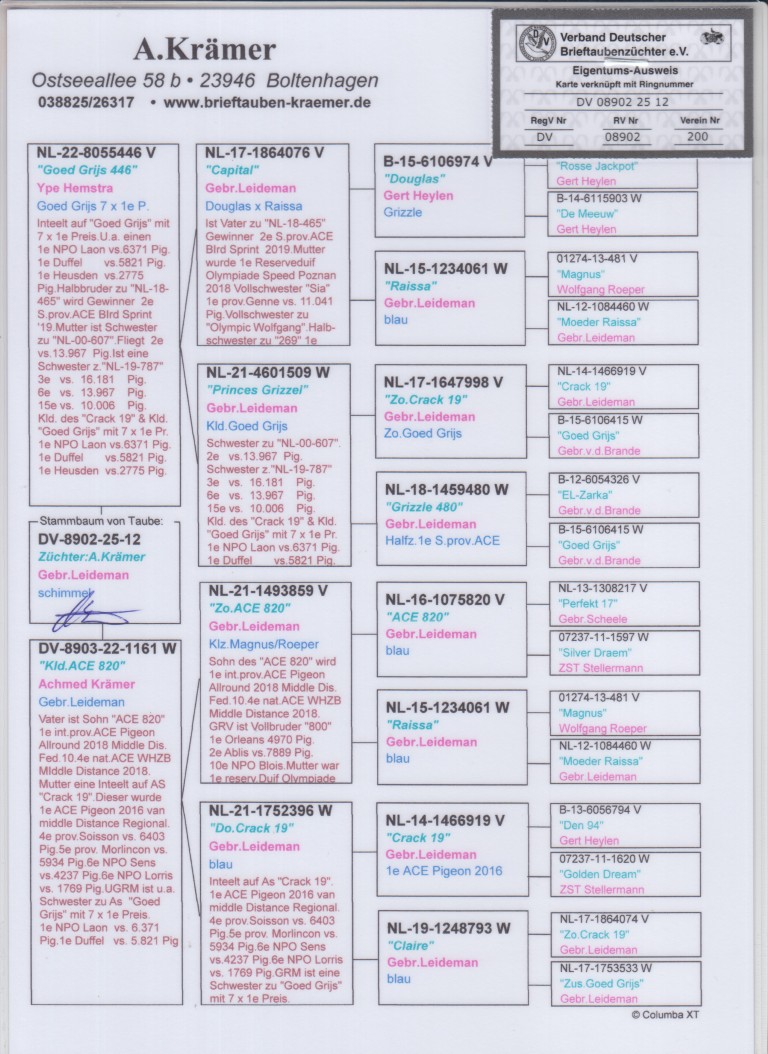 A.Krämer
Ostseeallee 58 b • 23946 Boltenhagen
038825/26317 • www.brieftauben-kraemer.de
Verband Deutscher
Brieftaubenzüchter e.V.
Eigentums-Ausweis
Karte verknüpft mit Ringnummer
DV 08902 25 12
RegV Nr RV Nr Verein Nr
DV 08902 200
NL-22-8055446 V
"Goed Grijs 446"
Ype Hemstra
Goed Grijs 7 x 1e P.
Inteelt auf "Goed Grijs" mit
7 x 1e Preis.U.a. einen
1e NPO Laon vs.6371 Pig.
1e Duffel vs.5821 Pig.
1e Heusden vs.2775
Pig.Halbbruder zu "NL-18-
465" wird Gewinner 2e
S.prov.ACE Blrd Sprint
'19.Mutter ist Schwester
zu "NL-00-607".Fliegt 2e
vs.13.967 Pig.Ist eine
Schwester z."NL-19-787"
3e vs. 16.181 Pig.
6e vs. 13.967 Pig.
15e vs. 10.006 Pig.
Kld. des "Crack 19" & Kld.
"Goed Grijs" mit 7 x 1e Pr.
1e NPO Laon vs.6371 Pig.
1e Duffel vs.5821 Pig.
1e Heusden vs.2775 Pig.
Stammbaum von Taube:
DV-8902-25-12
Züchter:A.Krämer
Gebr.Leideman
schimmel
DV-8903-22-1161 W
"Kld.ACE 820"
Achmed Krämer
Gebr.Leideman
Vater ist Sohn "ACE 820"
1e int.prov.ACE Pigeon
Allround 2018 Middle Dis.
Fed.10.4e nat.ACE WHZB
MIddle Distance 2018.
Mutter eine Inteelt auf AS
"Crack 19".Dieser wurde
1e ACE Pigeon 2016 van
middle Distance Regional.
4e prov.Soisson vs. 6403
Pig.5e prov. Morlincon vs.
5934 Pig.6e NPO Sens
vs.4237 Pig.6e NPO Lorris
vs. 1769 Pig.UGRM ist u.a.
Schwester zu As "Goed
Grijs" mit 7 x 1e Preis.
1e NPO Laon vs. 6.371
Pig.1e Duffel vs. 5.821 Pig
NL-17-1864076 V
"Capital"
Gebr.Leideman
Douglas x Raissa
Ist Vater zu "NL-18-465"
Gewinner 2e S.prov.ACE
Blrd Sprint 2019.Mutter
wurde 1e Reserveduif
Olympiade Speed Poznan
2018 Vollschwester "Sia"
1e prov.Genne vs. 11.041
Pig.Vollschwester zu
"Olympic Wolfgang".Halb-
schwester zu "269" 1e
NL-21-4601509 W
"Princes Grizzel"
Gebr.Leideman
Kld.Goed Grijs
Schwester zu "NL-00-607".
2e vs.13.967 Pig.
Schwester z."NL-19-787"
3e vs. 16.181 Pig.
6e vs. 13.967 Pig.
15e vs. 10.006 Pig.
Kld. des "Crack 19" & Kld.
"Goed Grijs" mit 7 x 1e Pr.
1e NPO Laon vs.6371 Pig.
1e Duffel vs.5821 Pig.
NL-21-1493859 V
"Zo.ACE 820"
Gebr.Leideman
Klz.Magnus/Roeper
Sohn des "ACE 820" wird
1e int.prov.ACE Pigeon
Allround 2018 Middle Dis.
Fed.10.4e nat.ACE WHZB
Middle Distance 2018.
GRV ist Vollbruder "800"
1e Orleans 4970 Pig.
2e Ablis vs.7889 Pig.
10e NPO Blois.Mutter war
1e reserv.Duif Olympiade
NL-21-1752396 W
"Do.Crack 19"
Gebr.Leideman
blau
Inteelt auf As "Crack 19".
1e ACE Pigeon 2016 van
middle Distance Regional.
4e prov.Soisson vs. 6403
Pig.5e prov. Morlincon vs.
5934 Pig.6e NPO Sens
vs.4237 Pig.6e NPO Lorris
vs. 1769 Pig.GRM ist eine
Schwester zu "Goed Grijs"
mit 7 x 1e Preis.
B-15-6106974 V
"Douglas"
Gert Heylen
Grizzle
NL-15-1234061 W
"Raissa"
Gebr.Leideman
blau
NL-17-1647998 V
"Zo.Crack 19"
Gebr.Leideman
Zo.Goed Grijs
NL-18-1459480 W
"Grizzle 480"
Gebr.Leideman
Halfz.1e S.prov.ACE
NL-16-1075820 V
"ACE 820"
Gebr.Leideman
blau
NL-15-1234061 W
"Raissa"
Gebr.Leideman
blau
NL-14-1466919 V
"Crack 19"
Gebr.Leideman
1e ACE Pigeon 2016
NL-19-1248793 W
"Claire"
Gebr.Leideman
blau
"Rosse Jackpot"
Gert Heylen
B-14-6115903 W
"De Meeuw"
Gert Heylen
01274-13-481 V
"Magnus"
Wolfgang Roeper
NL-12-1084460 W
"Moeder Raissa"
Gebr.Leideman
NL-14-1466919 V
"Crack 19"
Gebr.Leideman
B-15-6106415 W
"Goed Grijs"
Gebr.v.d.Brande
B-12-6054326 V
"EL-Zarka"
Gebr.v.d.Brande
B-15-6106415 W
"Goed Grijs"
Gebr.v.d.Brande
NL-13-1308217 V
"Perfekt 17"
Gebr.Scheele
07237-11-1597 W
"Silver Draem"
ZST Stellermann
01274-13-481 V
"Magnus"
Wolfgang Roeper
NL-12-1084460 W
"Moeder Raissa"
Gebr.Leideman
B-13-6056794 V
"Den 94"
Gert Heylen
07237-11-1620 W
"Golden Dream"
ZST Stellermann
NL-17-1864074 V
"Zo.Crack 19"
Gebr.Leideman
NL-17-1753533 W
"Zus.Goed Grijs"
Gebr.Leideman
© Columba XT